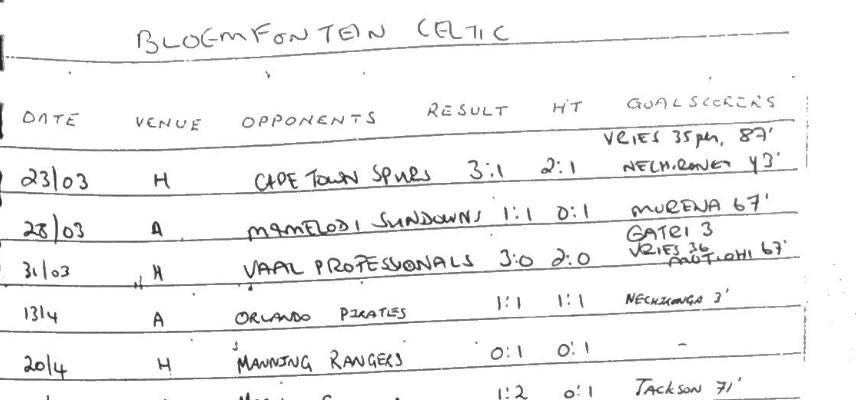 BLOEMFONTEIN CELTIC
DATE VENUE OPPONENTS RESULT HT GOALSCORERS
VRIES 35pen, 87'
23/03 H CAPE TOWN SPURS 3:1 2:1 43'
28/03 A MAMELODI SUNDOWNS 1:1 0:1 MURENA 67'
GATRI 3
VRIES 36
31/03 H VAAL PROFESSIONALS 3:0 2:0 67'
13/4 A ORLANDO PIRATES 1:1 1:1 3'
20/4 H MANNING RANGERS 0:1 0:1 -
1:2 0:1 TACKSON 71'